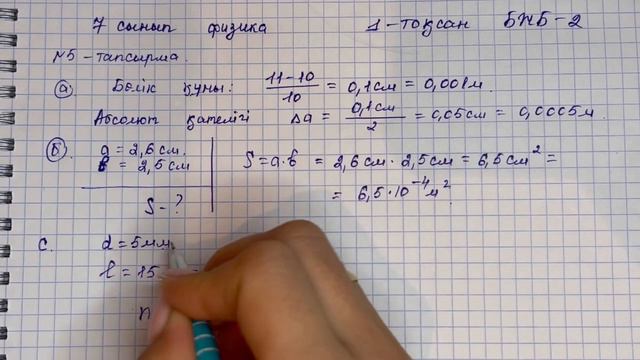 7 сынып физика 1-тоқсан БЖБ-2
№5-тапсырма.
а. Бөлік құны: 11-10/10 = 0,1см = 0,001м.
Абсолют қателігі Δа = 0,1см/2 = 0,05см = 0,0005м
б. а = 2,6 см.
в = 2,5 см
S-?
S = а·в = 2,6 см · 2,5 см = 6,5 см² =
= 6,5·10⁻⁴ м².
с. d = 5мм
ℓ = 15
n